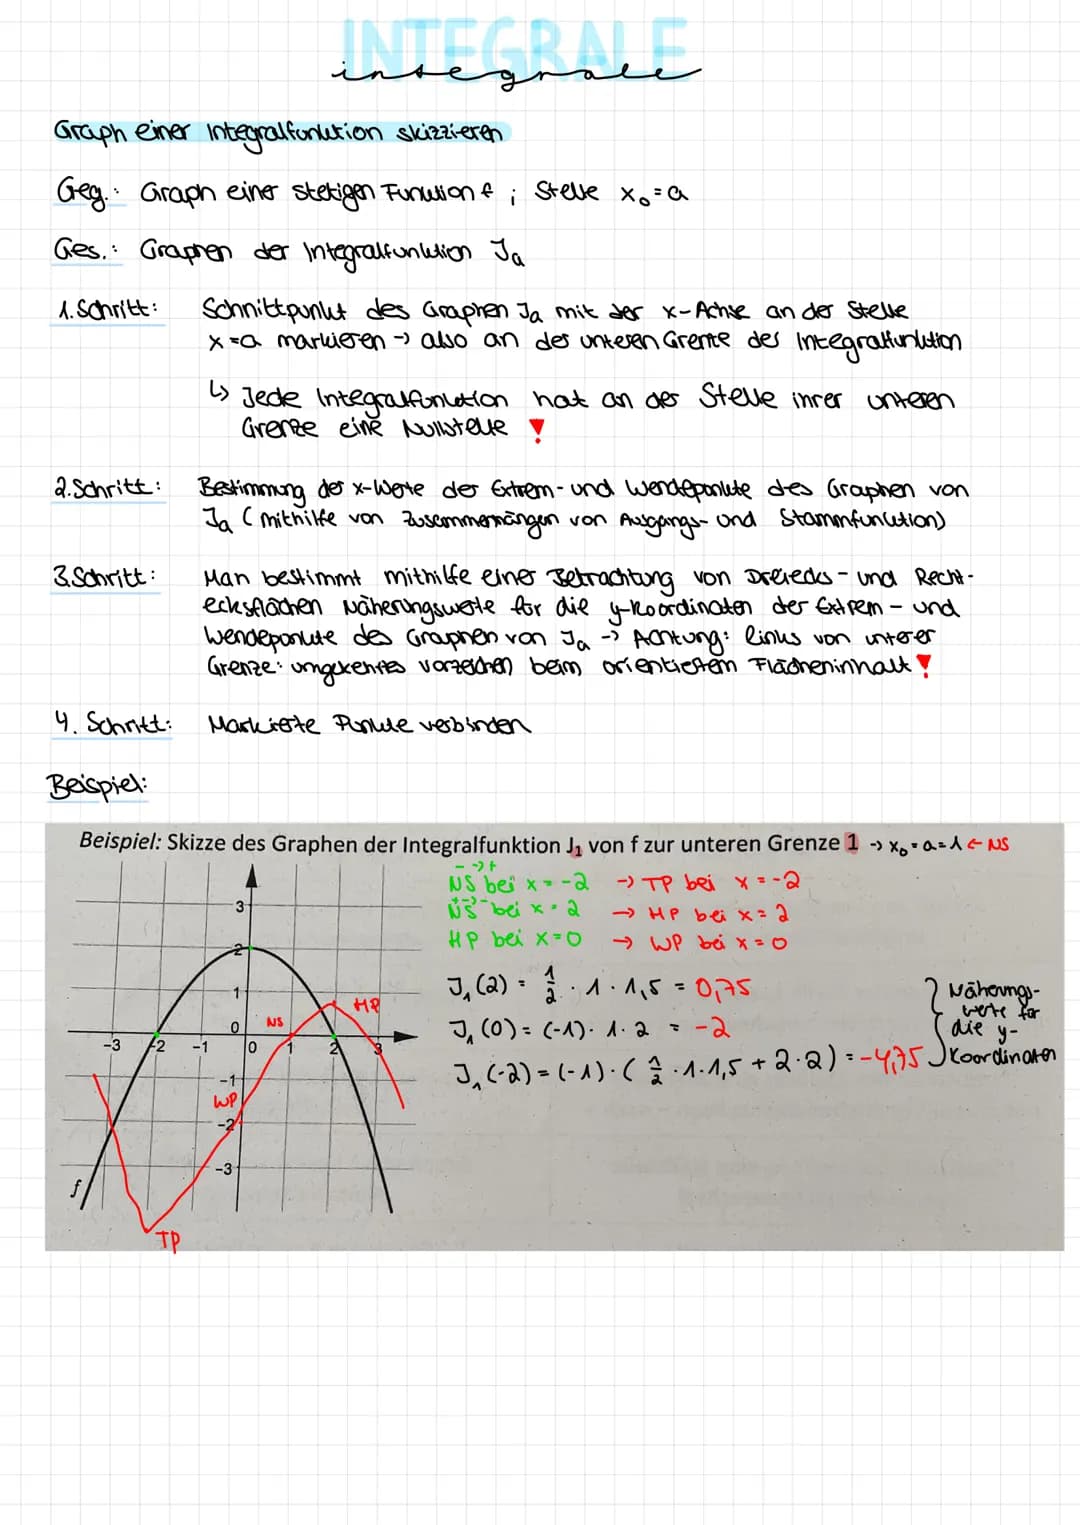 INTEGRALE
integrale
Graph einer Integralfunktion skizzieren
Geg.: Graph einer stetigen Funktion f ; Stelle x₀=a
Ges.: Graphen der Integralfunktion Ja
1. Schritt: Schnittpunkt des Graphen Ja mit der x-Achse an der Stelle
x=a markieren -> also an der unteren Grenze der Integralfunktion
↳ Jede Integralfunktion hat an der Stelle ihrer unteren
Grenze eine Nullstelle !
2. Schritt: Bestimmung der x-Werte der Extrem- und Wendepunkte des Graphen von
Ja (mithilfe von Zusammenhängen von Ausgangs- und Stammfunktion)
3. Schritt: Man bestimmt mithilfe einer Betrachtung von Dreiecks- und Recht-
ecksflächen Näherungswerte für die y-Koordinaten der Extrem- und
Wendepunkte des Graphen von Ja -> Achtung: links von unterer
Grenze: umgekehrtes Vorzeichen beim orientiertem Flächeninhalt !
4. Schritt: Markierte Punkte verbinden
Beispiel:
Beispiel: Skizze des Graphen der Integralfunktion J₁ von f zur unteren Grenze 1 -> x₀=a=1 ← NS
- -> +
NS bei x=-2 -> TP bei x=-2
+ -> -
NS bei x=2 -> HP bei x=2
HP bei x=0 -> WP bei x=0
J₁(2) = 1/2 · 1 · 1,5 = 0,75
J₁(0) = (-1) · 1 · 2 = -2
J₁(-2) = (-1) · (1/2 · 1 · 1,5 + 2 · 2) = -4,75
Näherungs-
werte für
die y-
Koordinaten
3
2
1
0
-3 -2 -1 0 1 2 3
-1
-2
-3
NS
HP
WP
TP
f